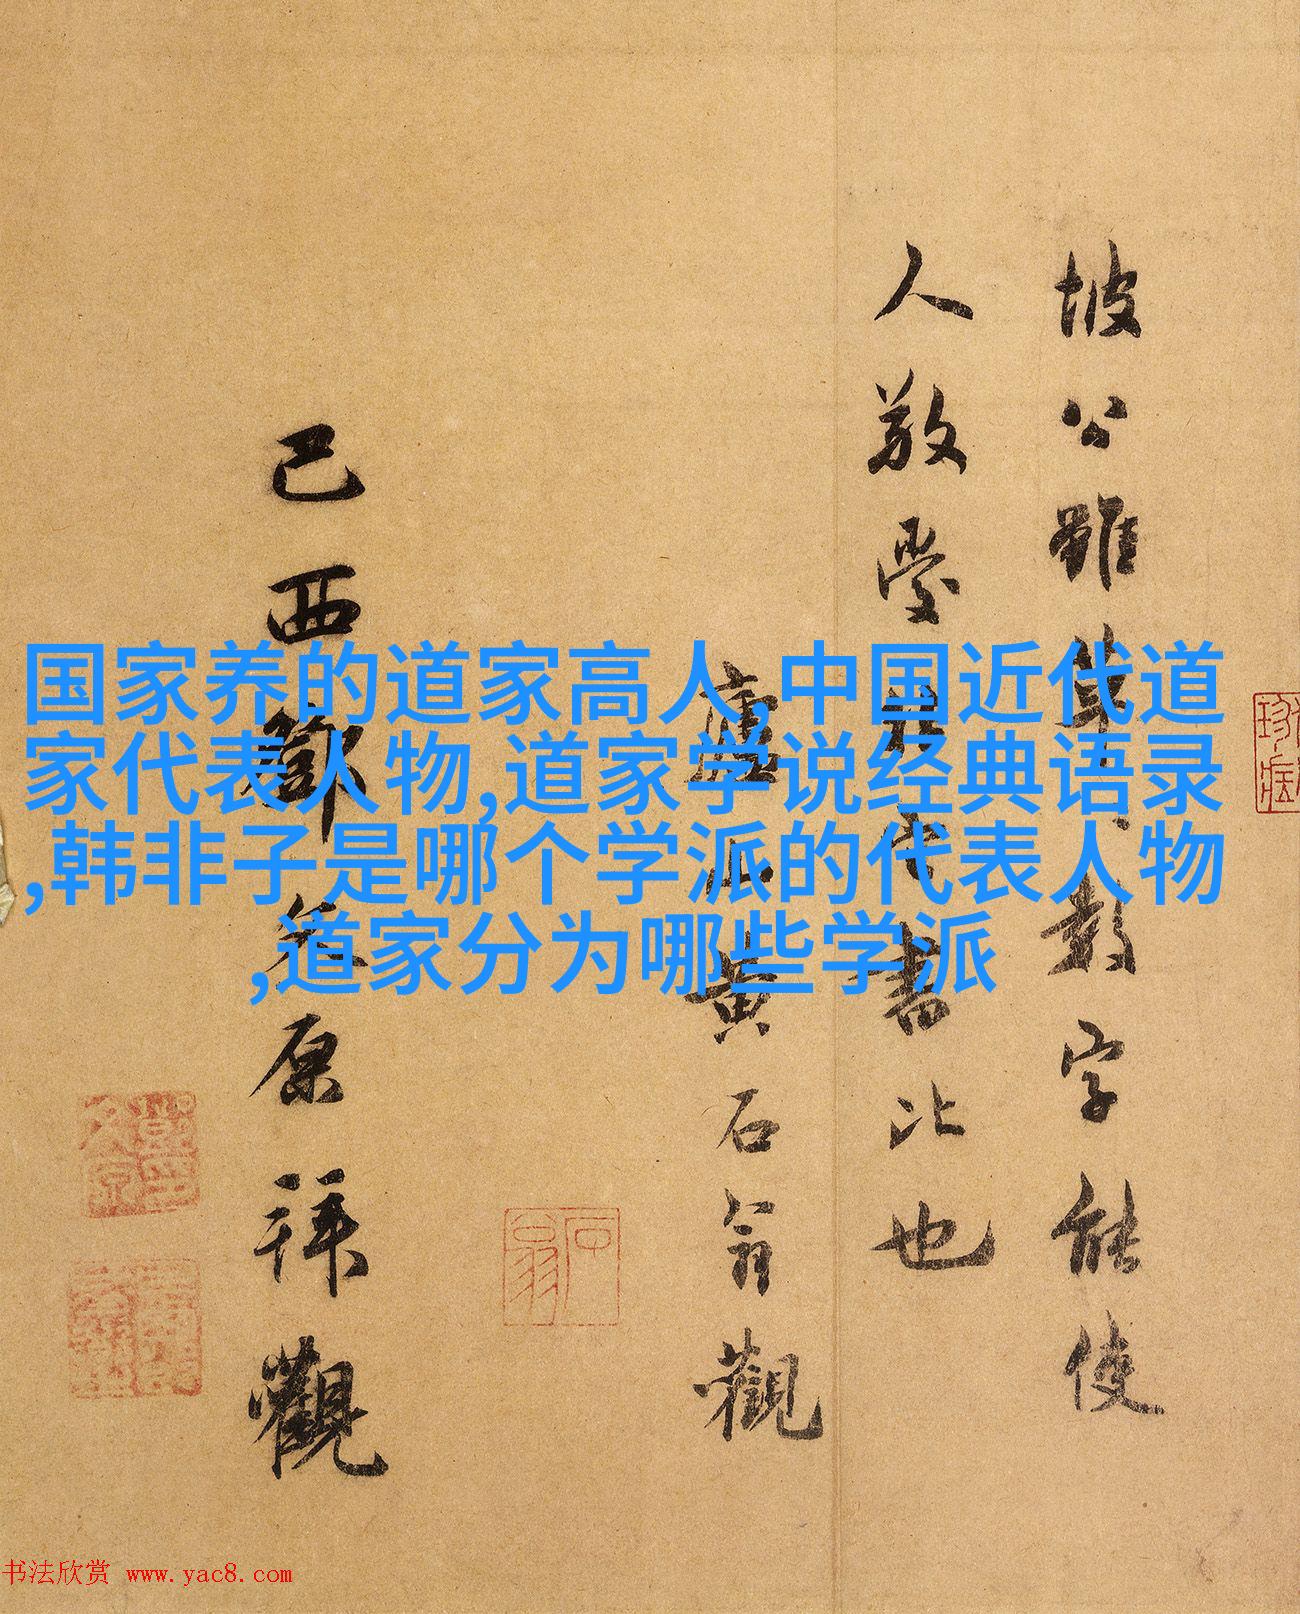 坡公雖草草數字能使
人敬愛
書比也
廬山黄石翁觀
己酉鄧
原拜觀
石翁
国家养的道家高人,中国近代道
家代表人物,道家学说经典语录
,韩非子是哪个学派的代表人物
,道家分为哪些学派
书法欣赏 www.yac8.com